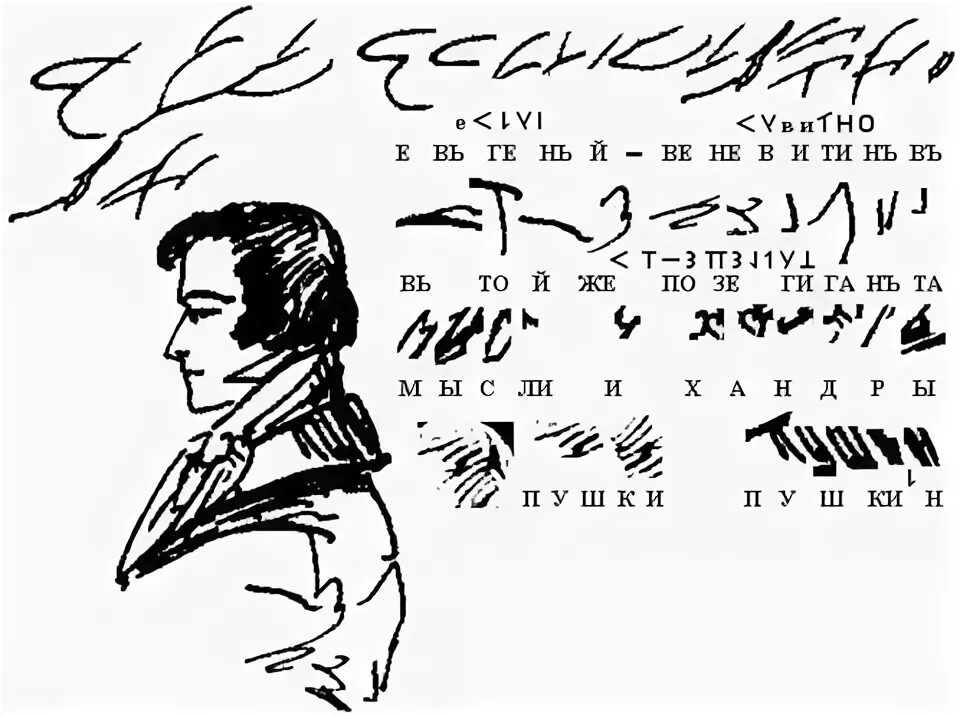 е<1У1 <УвиТНО
Е ВЬ ГЕ НЬ Й – ВЕ НЕ В И ТИ НЪ ВЪ
< Т–З ПЗ11У⊥
ВЬ ТО Й ЖЕ ПО ЗЕ ГИ ГА НЪ ТА
М Ы С ЛИ И Х А Н Д Р Ы
П У Ш К И П У Ш КИ Н